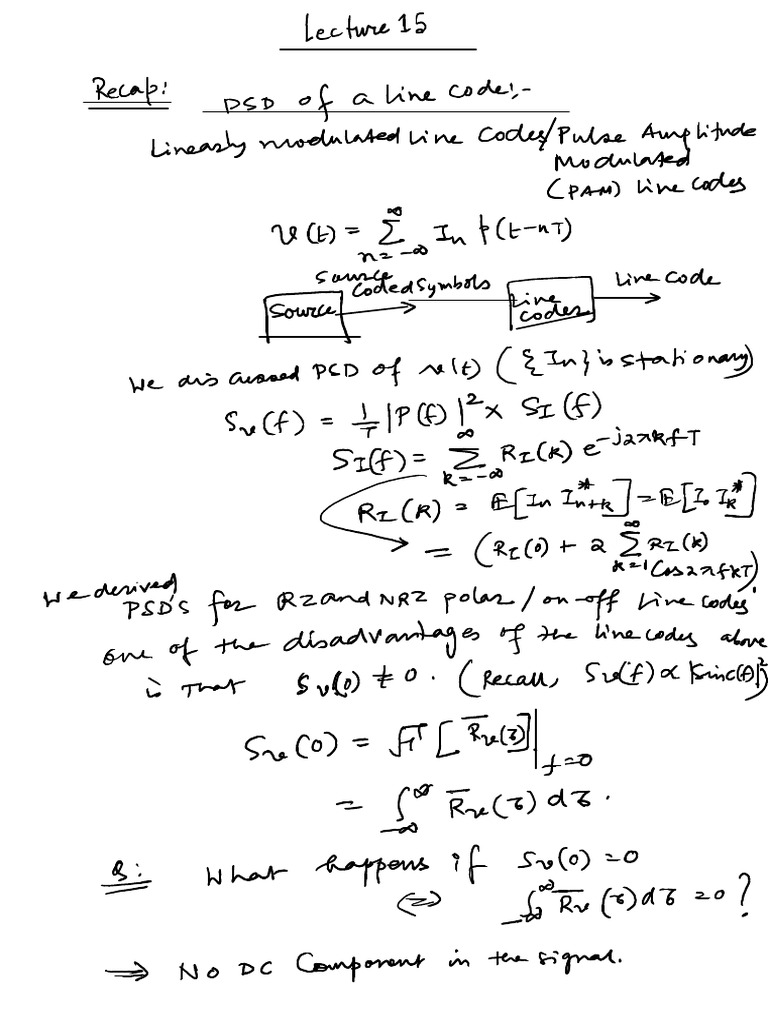 Lecture 15
Recap: PSD of a line code:-
Linearly modulated Line Codes/Pulse Amplitude
Modulated
(PAM) line codes
v(t) = ∑_{n=-∞}^{∞} I_n p(t-nT)
Source
Coded Symbols
Line Code
Source
Line
Codes
We discussed PSD of v(t) ({I_n} is stationary)
S_v(f) = 1/T |P(f)|^2 × S_I(f)
S_I(f) = ∑_{k=-∞}^{∞} R_I(k) e^{-j2πkfT}
R_I(k) = E[I_n I*_{n+k}] = E[I_0 I_k^*]
= (R_I(0) + 2 ∑_{k=1}^{∞} R_I(k)
Cos2πfkT)
We derived
PSD's for RZ and NRZ polar/on-off line codes.
One of the disadvantages of the line codes above
is that S_v(0) ≠ 0. (Recall, S_v(f) ∝ |sinc(f)|^2)
S_v(0) = FT [R̅_v(τ)]|_{f=0}
= ∫_{-∞}^{∞} R̅_v(τ) dτ.
Q: What happens if S_v(0) = 0
⇔ ∫_{-∞}^{∞} R̅_v(τ) dτ = 0?
⇒ No DC Component in the signal.